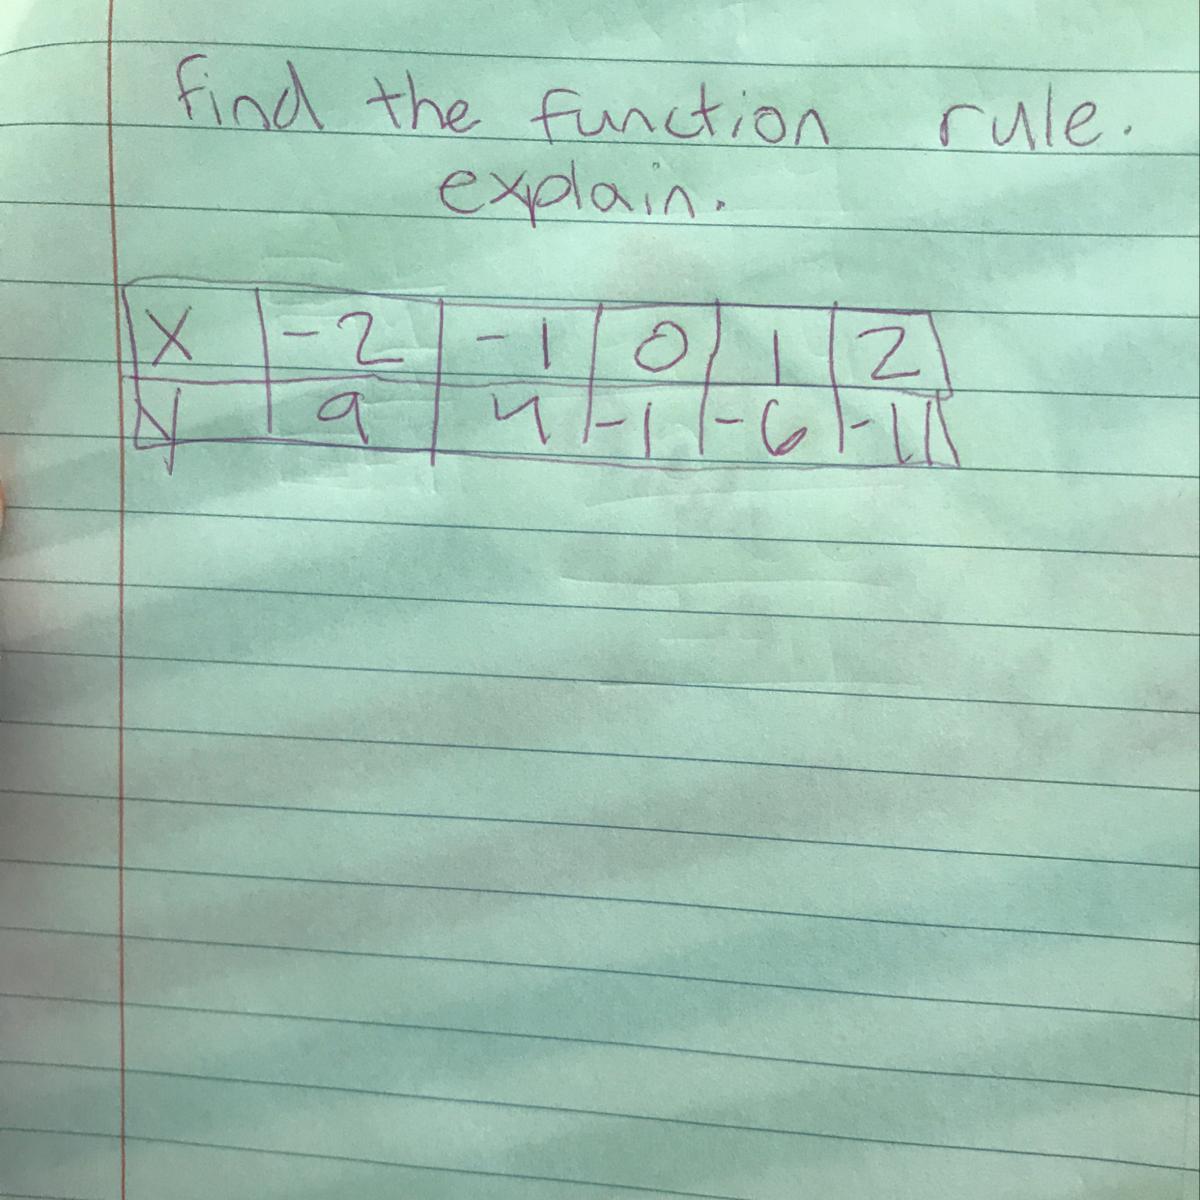 find the function rule.
explain.
X -2 -1 0 1 2
y 9 4 -1 -6 -11